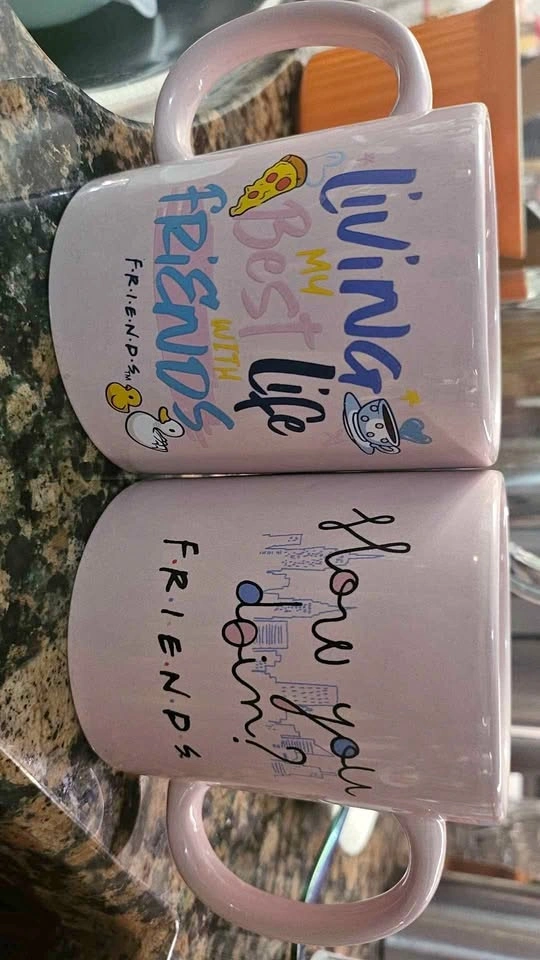 LiViNG
MY
Best Life
WITH
FRIENDS
F·R·I·E·N·D·S™
How you
doin?
F·R·I·E·N·D·S